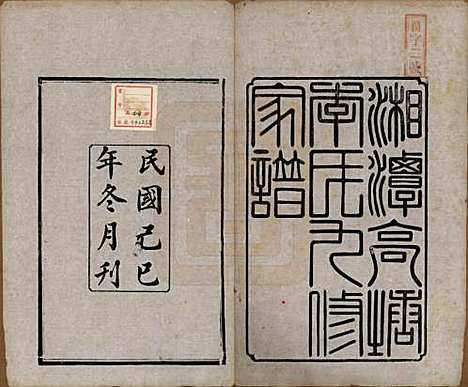 湘潭高塘
李氏九修
家譜
民國己巳
年冬月刊